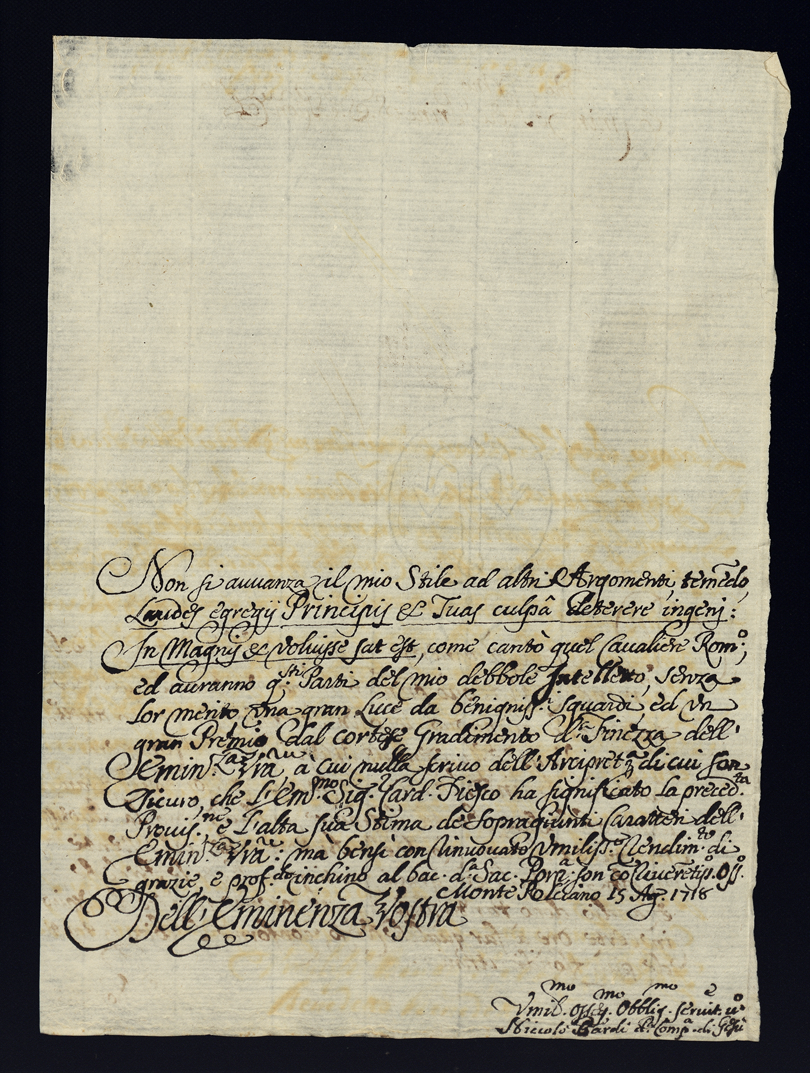 Non si avvanza il mio Stile ad altri Argomenti, temēdo
Laudes egregij Principis et Tuas culpâ deterere ingenj:
In Magnis et voluisse sat est, come cantò quel Cavaliere Rom.º,
ed avranno q.sti Parti del mio debbole Intelletto, senza
lor merito una gran Luce da benigniss. Sguardi ed un
gran Premio dal cortese Gradimento d. Finezza dell'
Emin.za Vrã, à cui nulla scrivo dell' Arcipret. di cui son
Sicuro, che l'Em.mo Sig. Card. Fiesco ha significato la preced.ta
Provis.ne e l'alta sua Stima de sopragiunti Caratteri dell'
Emin.za Vrã: ma bensi con rinuovato Umiliss. Rendim.to di
grazie, e prof.do inchino al bac. d. Sac. Porp.a son co
Monte Polciano 15 Ag. 1718
Dell' Eminenza Vostra
Umil.mo Obblig.mo servit.e
Niccolò Bardi d. Comp.a di Gesù